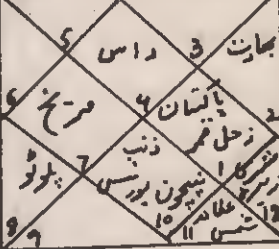 5 راس 3 بھارت
6 مریخ 4 پاکستان 2
زحل قمر
ذنب
پلوٹو 7 نیپچون یورینس 1
10 11 عطارد
شمس
8 9 12